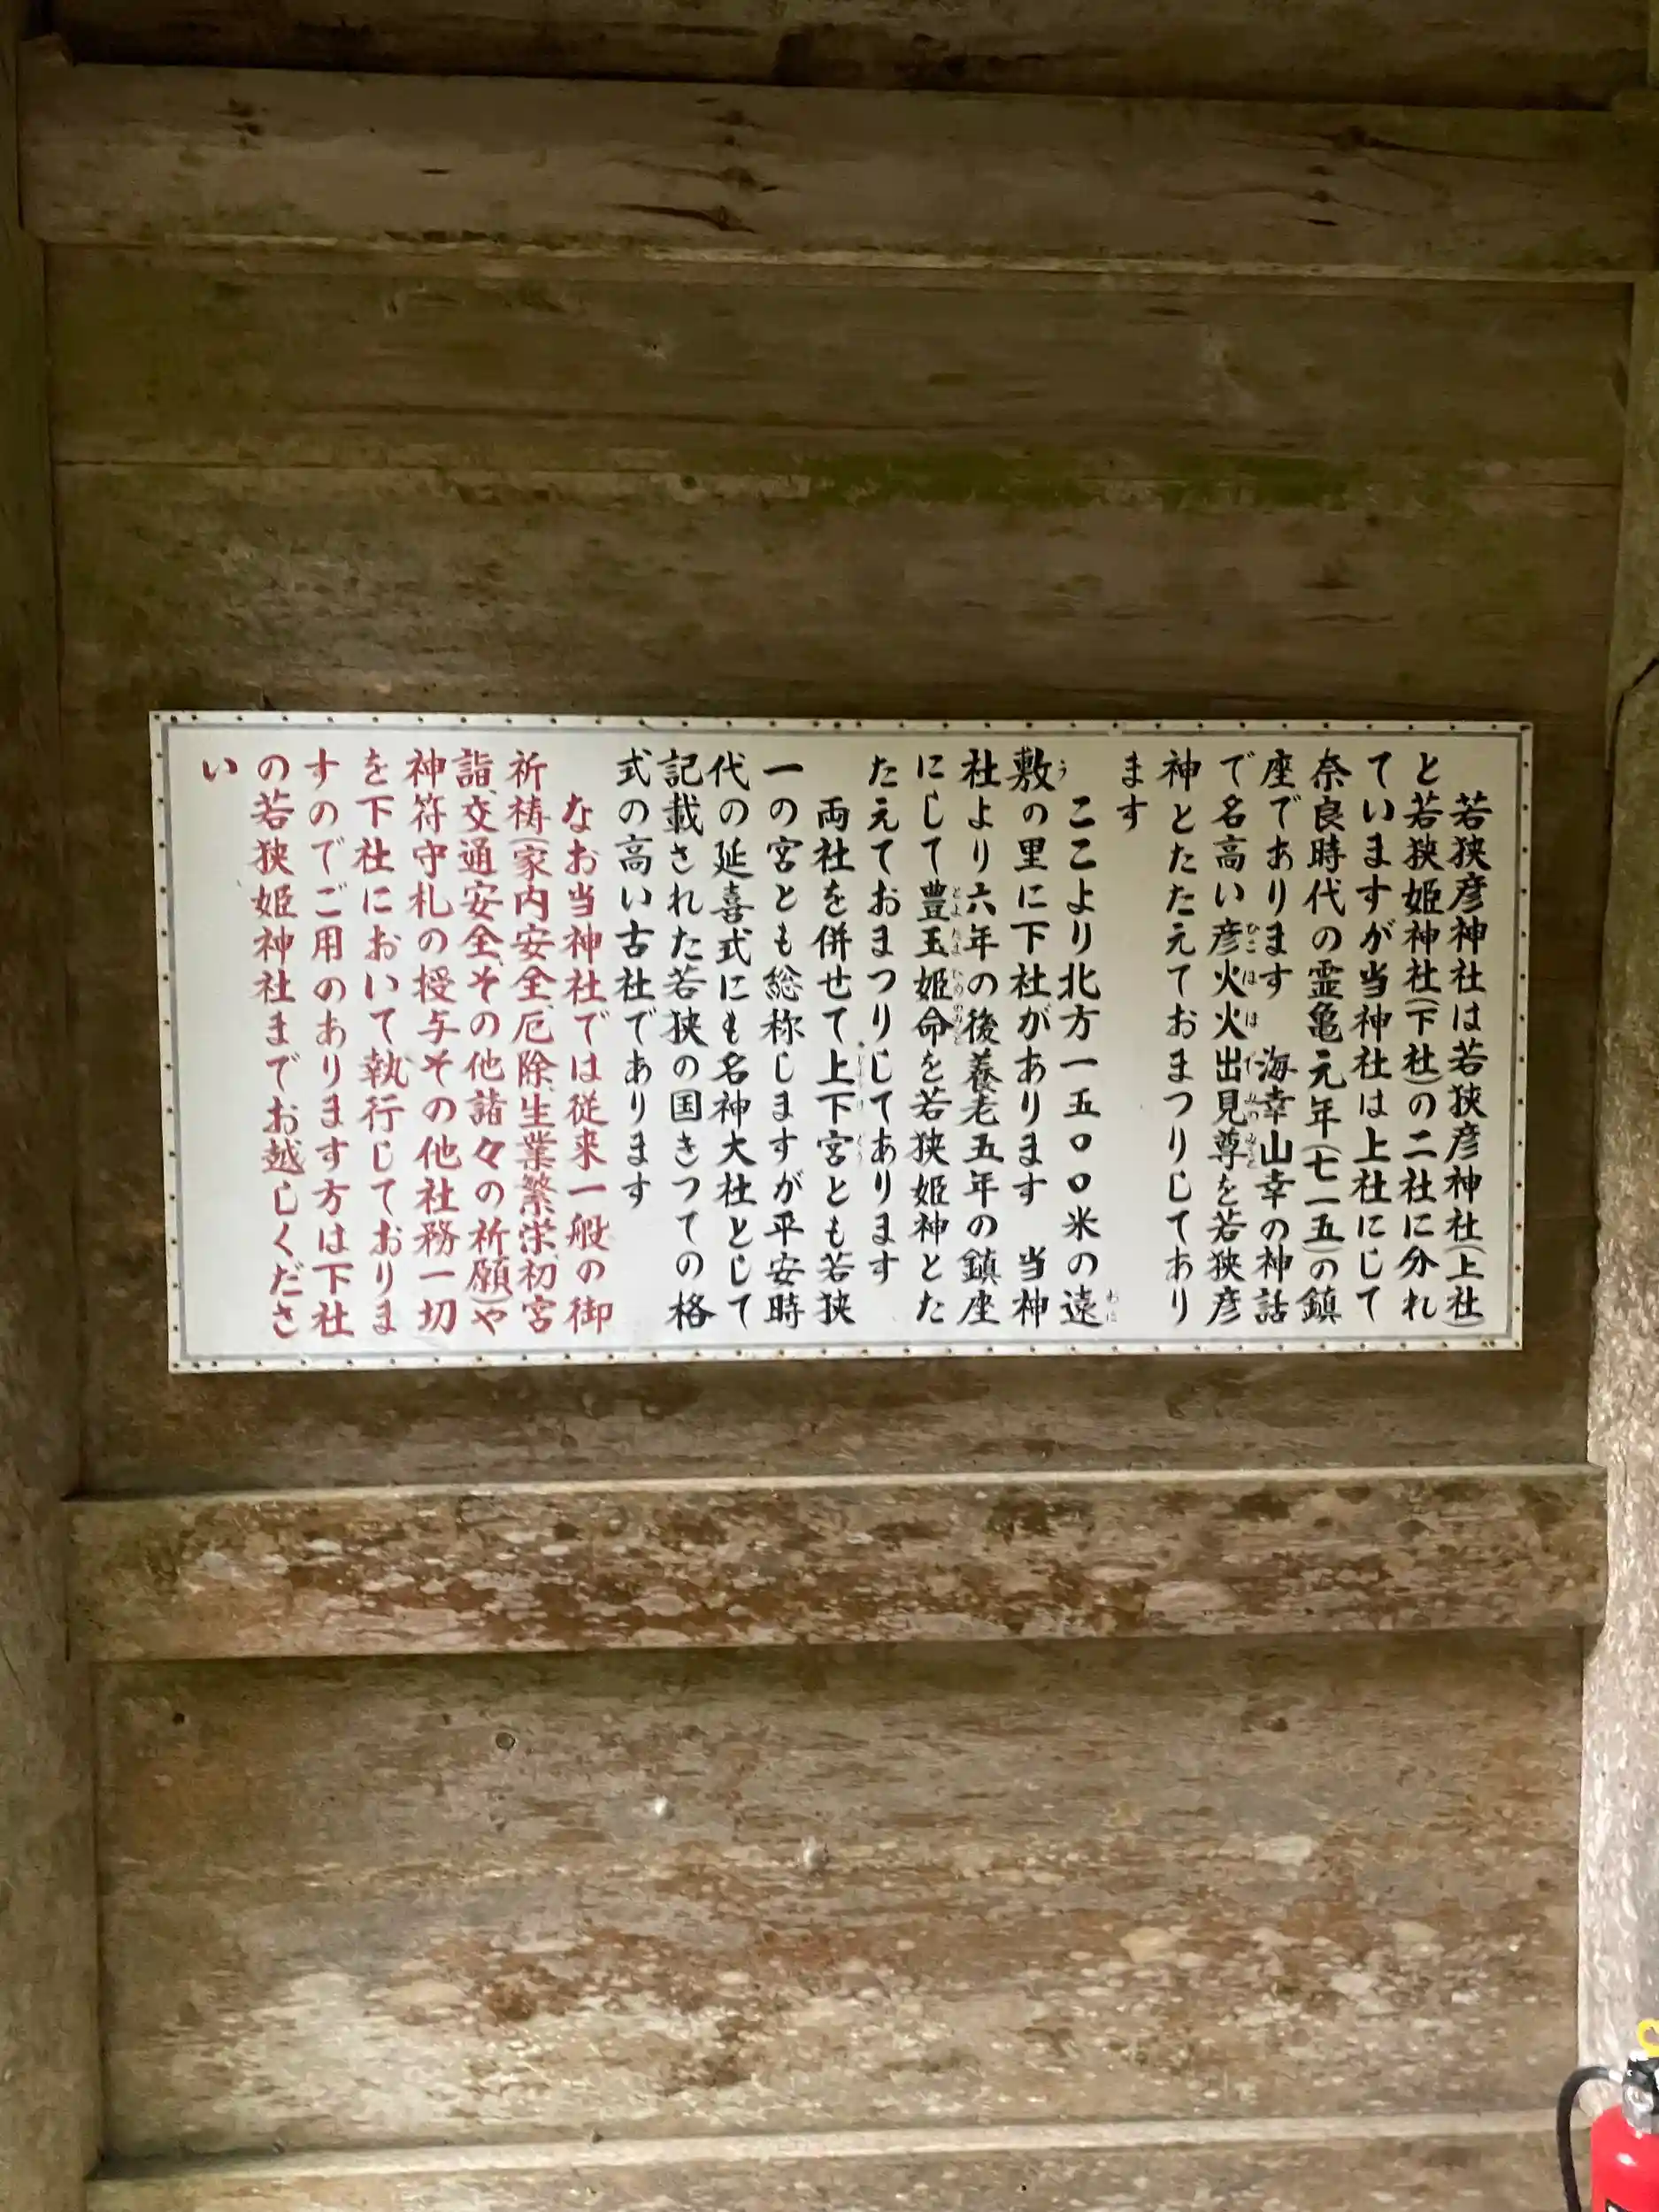 若狭彦神社は若狭彦神社(上社)
と若狭姫神社(下社)の二社に分れ
ていますが当神社は上社にして
奈良時代の霊亀元年(七一五)の鎮
座であります　海幸山幸の神話
で名高い彦火火出見尊を若狭彦
神とたたえておまつりしてあり
ます
ここより北方一五〇〇米の遠
敷の里に下社があります　当神
社より六年の後養老五年の鎮座
にして豊玉姫命を若狭姫神とた
たえておまつりしてあります
両社を併せて上下宮とも若狭
一の宮とも総称しますが平安時
代の延喜式にも名神大社として
記載された若狭の国きつての格
式の高い古社であります
なお当神社では従来一般の御
祈祷(家内安全、厄除、生業繁栄初宮
詣、交通安全、その他諸々の祈願)や
神符守札の授与その他社務一切
を下社において執行しておりま
すのでご用のあります方は下社
の若狭姫神社までお越しくださ
い